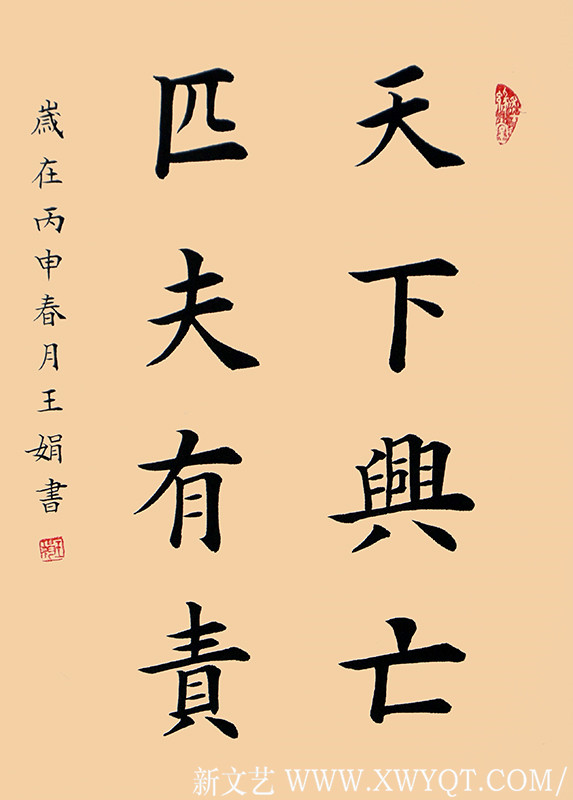 天下興亡
匹夫有責
歲在丙申春月王娟書
新文艺 WWW.XWYQT.COM/